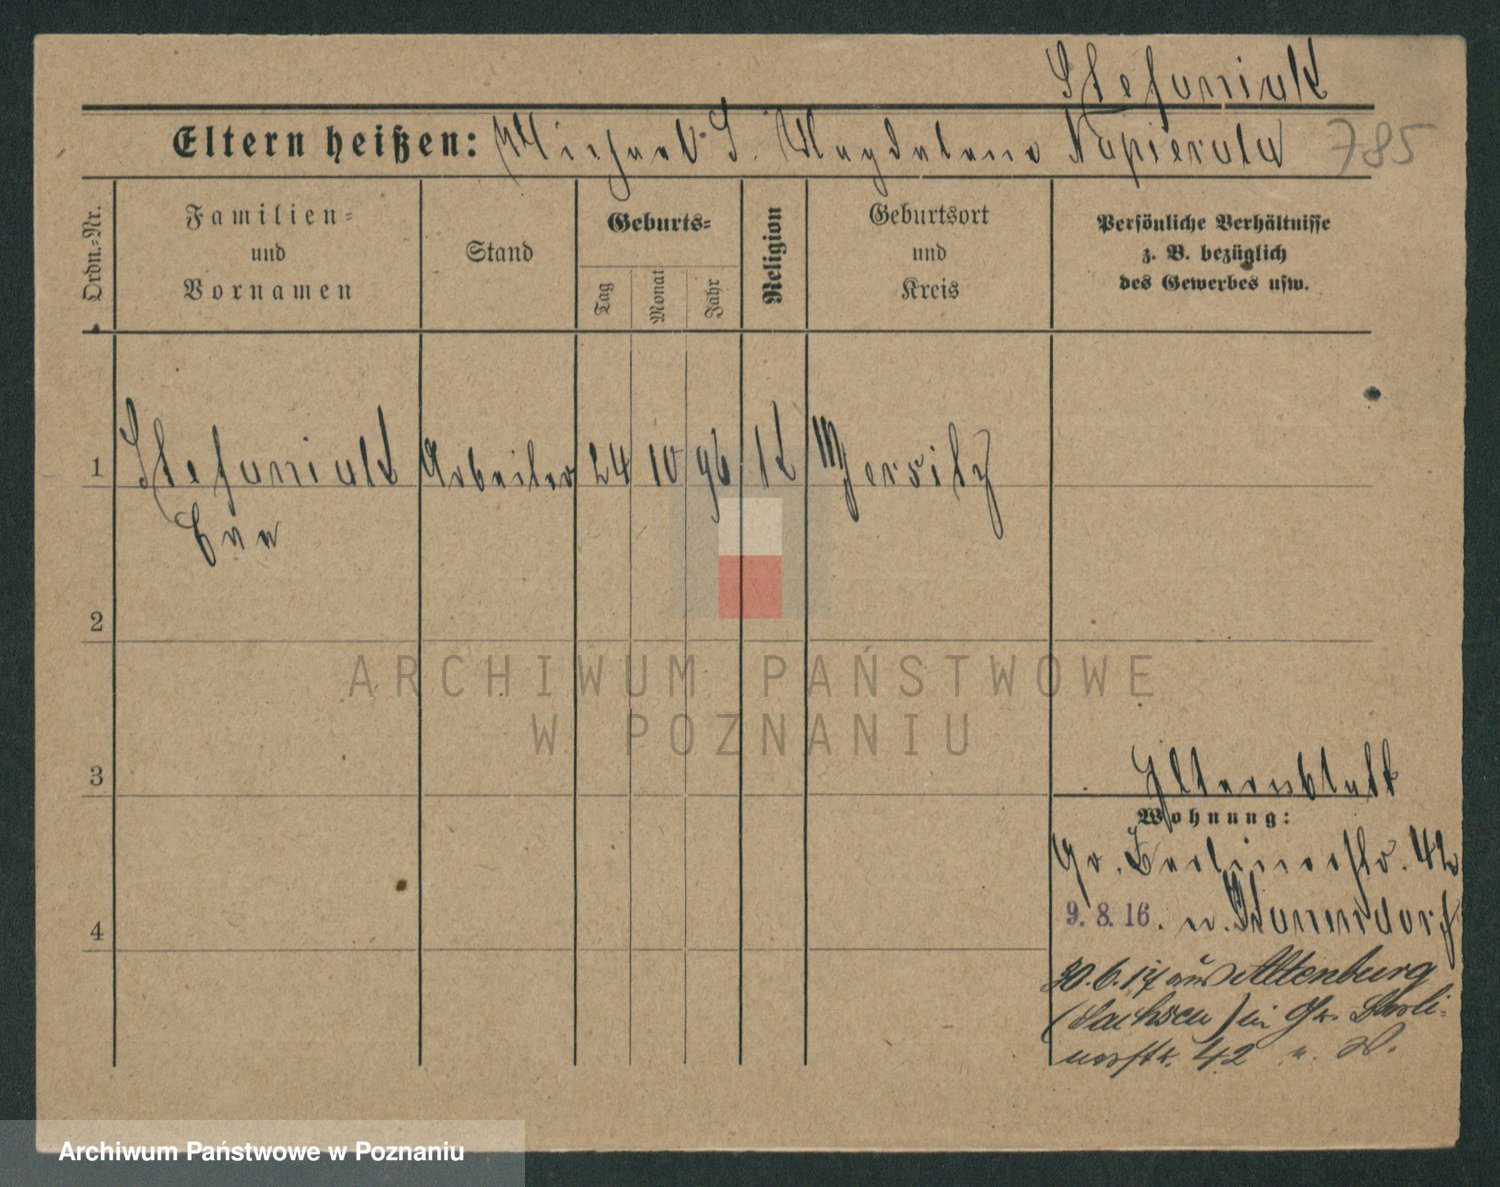 Stefaniak
Eltern heißen: Michael S. Magdalena Napierala 785
Ordn.-Nr.
Familien-
und
Vornamen
Stand
Geburts-
Tag
Monat
Jahr
Religion
Geburtsort
und
Kreis
Persönliche Verhältnisse
z. B. bezüglich
des Gewerbes usw.
1 Stefaniak Arbeiter 24 10 96 k Jersitz
Eva
2
3
4
ARCHIWUM PAŃSTWOWE
W POZNANIU
Elternblatt
Wohnung:
Gr. Berlinerstr. 42
9. 8. 16. n.
30.6.17 aus Altenburg
(Sachsen) in Gr. Berli-
nerstr. 42
Archiwum Państwowe w Poznaniu